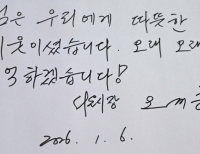 님은 우리에게 따뜻한
이웃이셨습니다. 오래 오래
억하겠습니다!
시장 오세훈
2026. 1. 6.